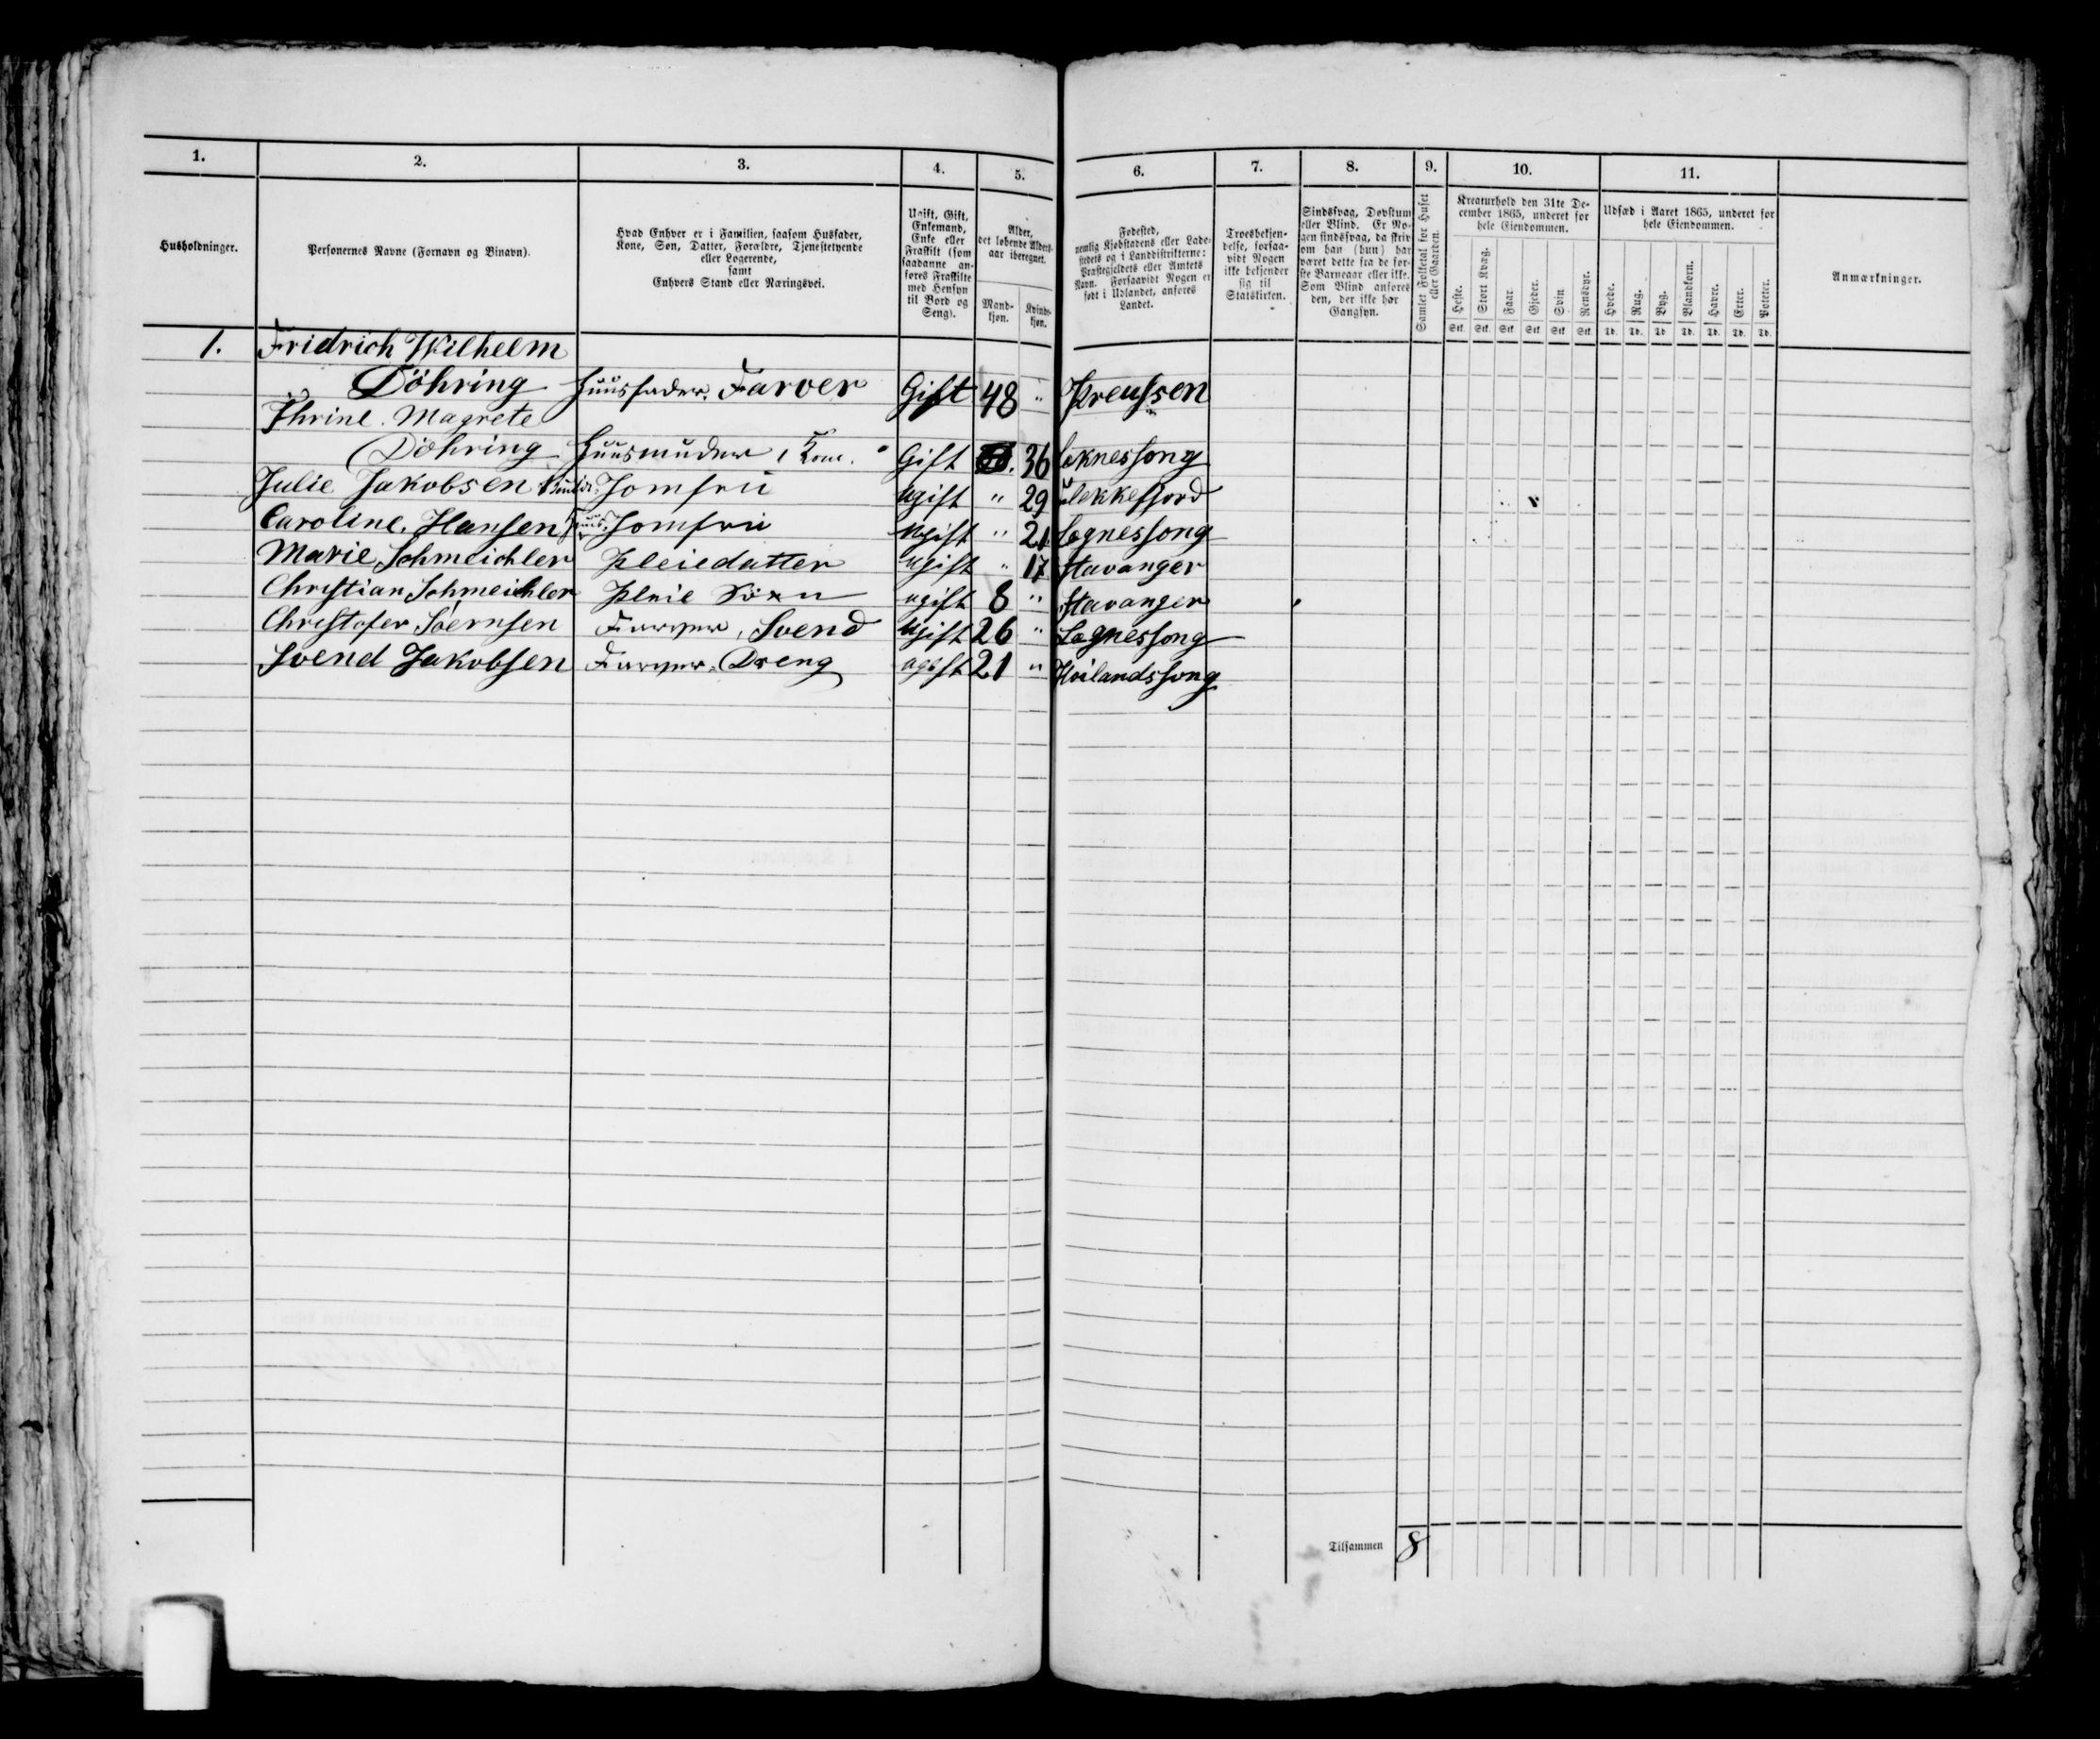 1. 2. 3. 4. 5. 6. 7. 8. 9. 10. 11.
Husholdninger.
Personernes Navne (Fornavn og Binavn).
Hvad Enhver er i Familien, saasom Husfader,
Kone, Søn, Datter, Forældre, Tjenestetyende
eller Logerende,
samt
Enhvers Stand eller Næringsvei.
Ugift, Gift,
Enkemand,
Enke eller
Fraskilt (som
saadanne an-
føres Fraskilte
med Hensyn
til Bord og
Seng).
Alder,
det løbende Alders-
aar iberegnet.
Mand-
kjøn.
Kvinde-
kjøn.
Fødested,
nemlig Kjøbstadens eller Lade-
stedets og i Landdistrikterne:
Præstegjeldets eller Amtets
Navn. Forsaavidt Nogen er
født i Udlandet, anføres
Landet.
Troesbekjen-
delse, forsaa-
vidt Nogen
ikke bekjender
sig til
Statskirken.
Sindssvag, Døvstum
eller Blind. Er No-
gen sindssvag, da skriv
om han (hun) har
været dette fra de før-
ste Barneaar eller ikke.
Som Blind anføres
den, der ikke har
Gangsyn.
Samlet Folketal for Huset
eller Gaarden.
Kreaturhold den 31te De-
cember 1865, underet for
hele Eiendommen.
Heste. Stort Kvæg. Faar. Gjeder. Svin. Rensdyr.
Stk. Stk. Stk. Stk. Stk. Stk.
Udsæd i Aaret 1865, underet for
hele Eiendommen.
Hvede. Rug. Byg. Blandkorn. Havre. Erter. Poteter.
Td. Td. Td. Td. Td. Td. Td.
Anmærkninger.
1. Fridrich Wilhelm
Döhring Huusfader. Farver Gift 48 " Preussen
Thrine. Magrete
Döhring Huusmuder, Kone. Gift 36
Julie Jakobsen Jomfru ugift " 29 Flekkefjord
Caroline. Hansen Huus. Jomfru ugift " 21 Sognessong
Marie Schmeichler Pleiedatter ugift " 17 Stavanger
Christian Schmeichler Pleie Sönn ugift 8 " Stavanger
Christofer Söernsen Farver, Svend ugift 26 " Sognessong
Svend Jakobsen Farver. Dreng ugift 21 " Höilandssong
Tilsammen 8